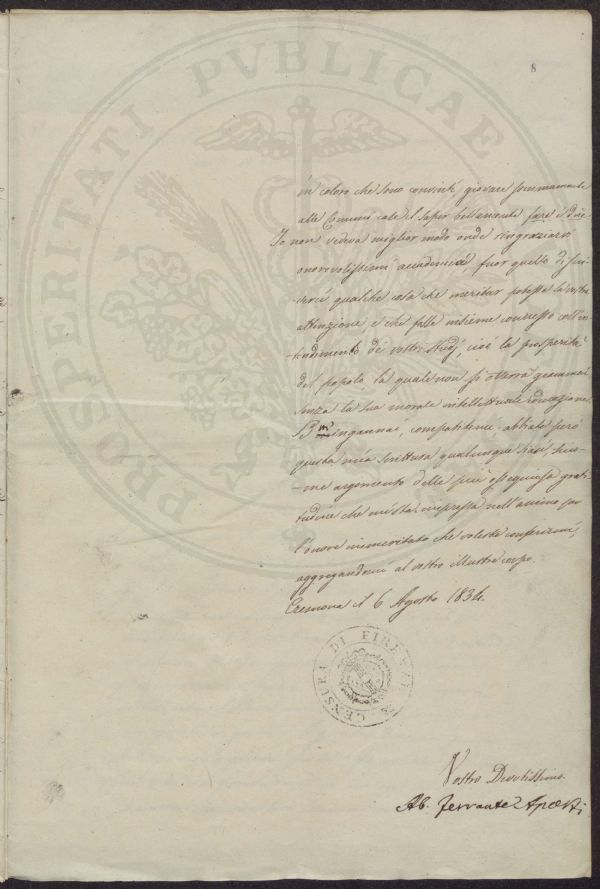 8
in coloro che sono convinti, giovare sommamente
alle Comuni cale il saper bellamente fare e dire
Io non vedeva miglior modo onde ringraziarvi
onorevolissimi accademici, fuor quello di
qualche cosa che meritar potesse la vostra
attenzione, e che fosse insieme connesso coll'in-
tendimento de' vostri studj, cioè la prosperità
del popolo la quale non si otterrà giammai
senza la sua morale intellettuale educazione.
M'ingannai, compatitemi: abbiate però
questa mia scrittura qualunque siasi, sicco-
me argomento della più ossequiosa grati-
tudine che mi sta impressa nell'animo per
l'onore immeritato che voleste conferirmi,
aggregandomi al vostro illustre corpo.
Cremona il 6 Agosto 1834.
CENSURA DI FIRENZE
Vostro Devotissimo
Ab. Ferrante Aporti
PROSPERITATI PVBLICAE